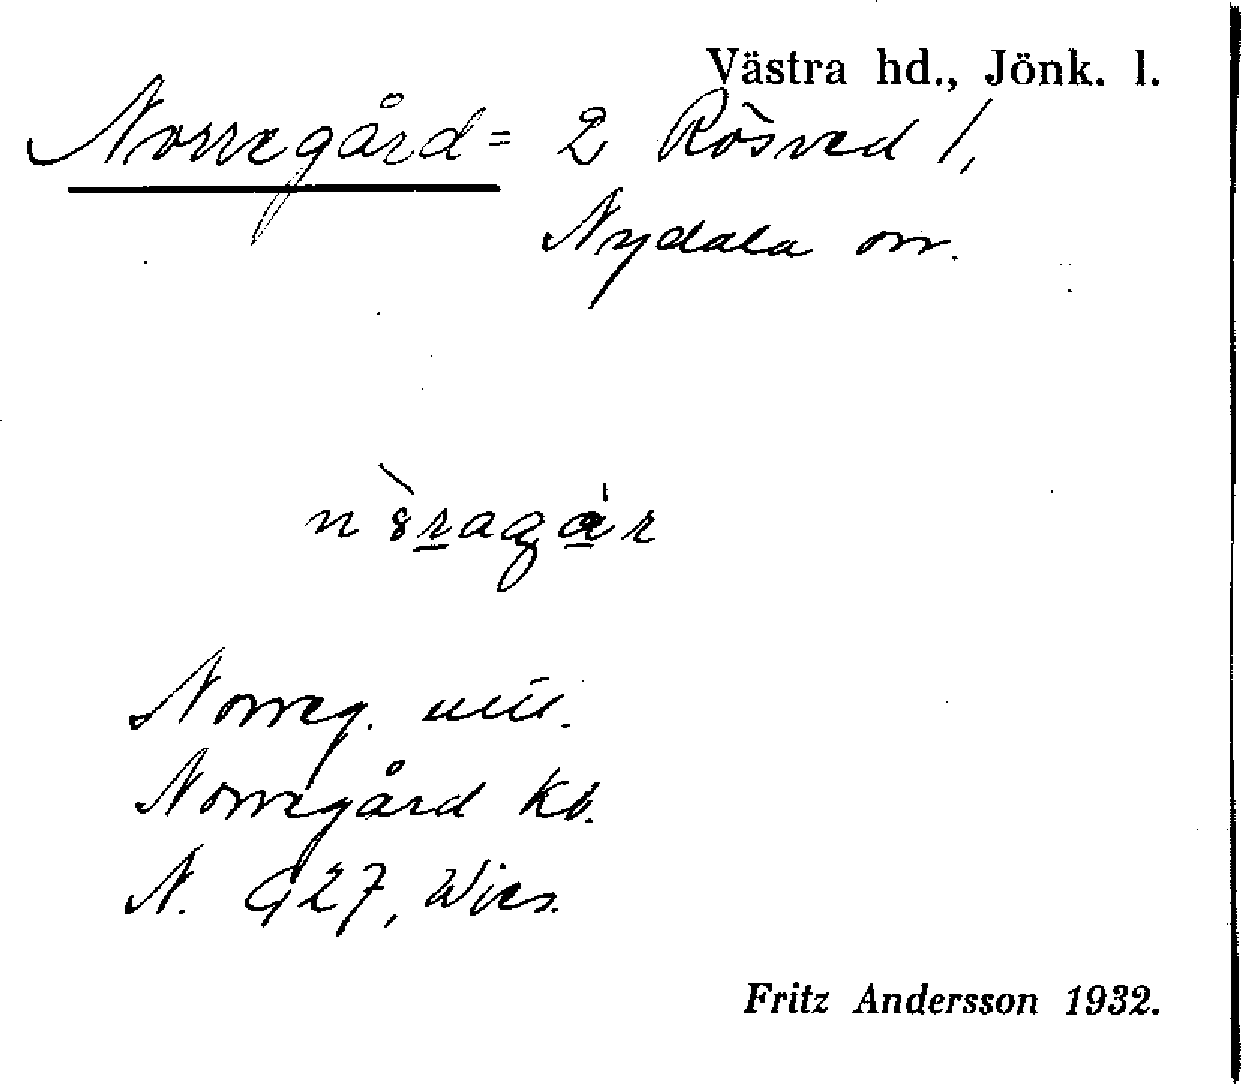 Västra hd., Jönk. l.
Norregård = 2 Rösved 1,
Nydala sn.
Norreg. utt.
Norregård Kb.
N. G 27, Wies.
Fritz Andersson 1932.